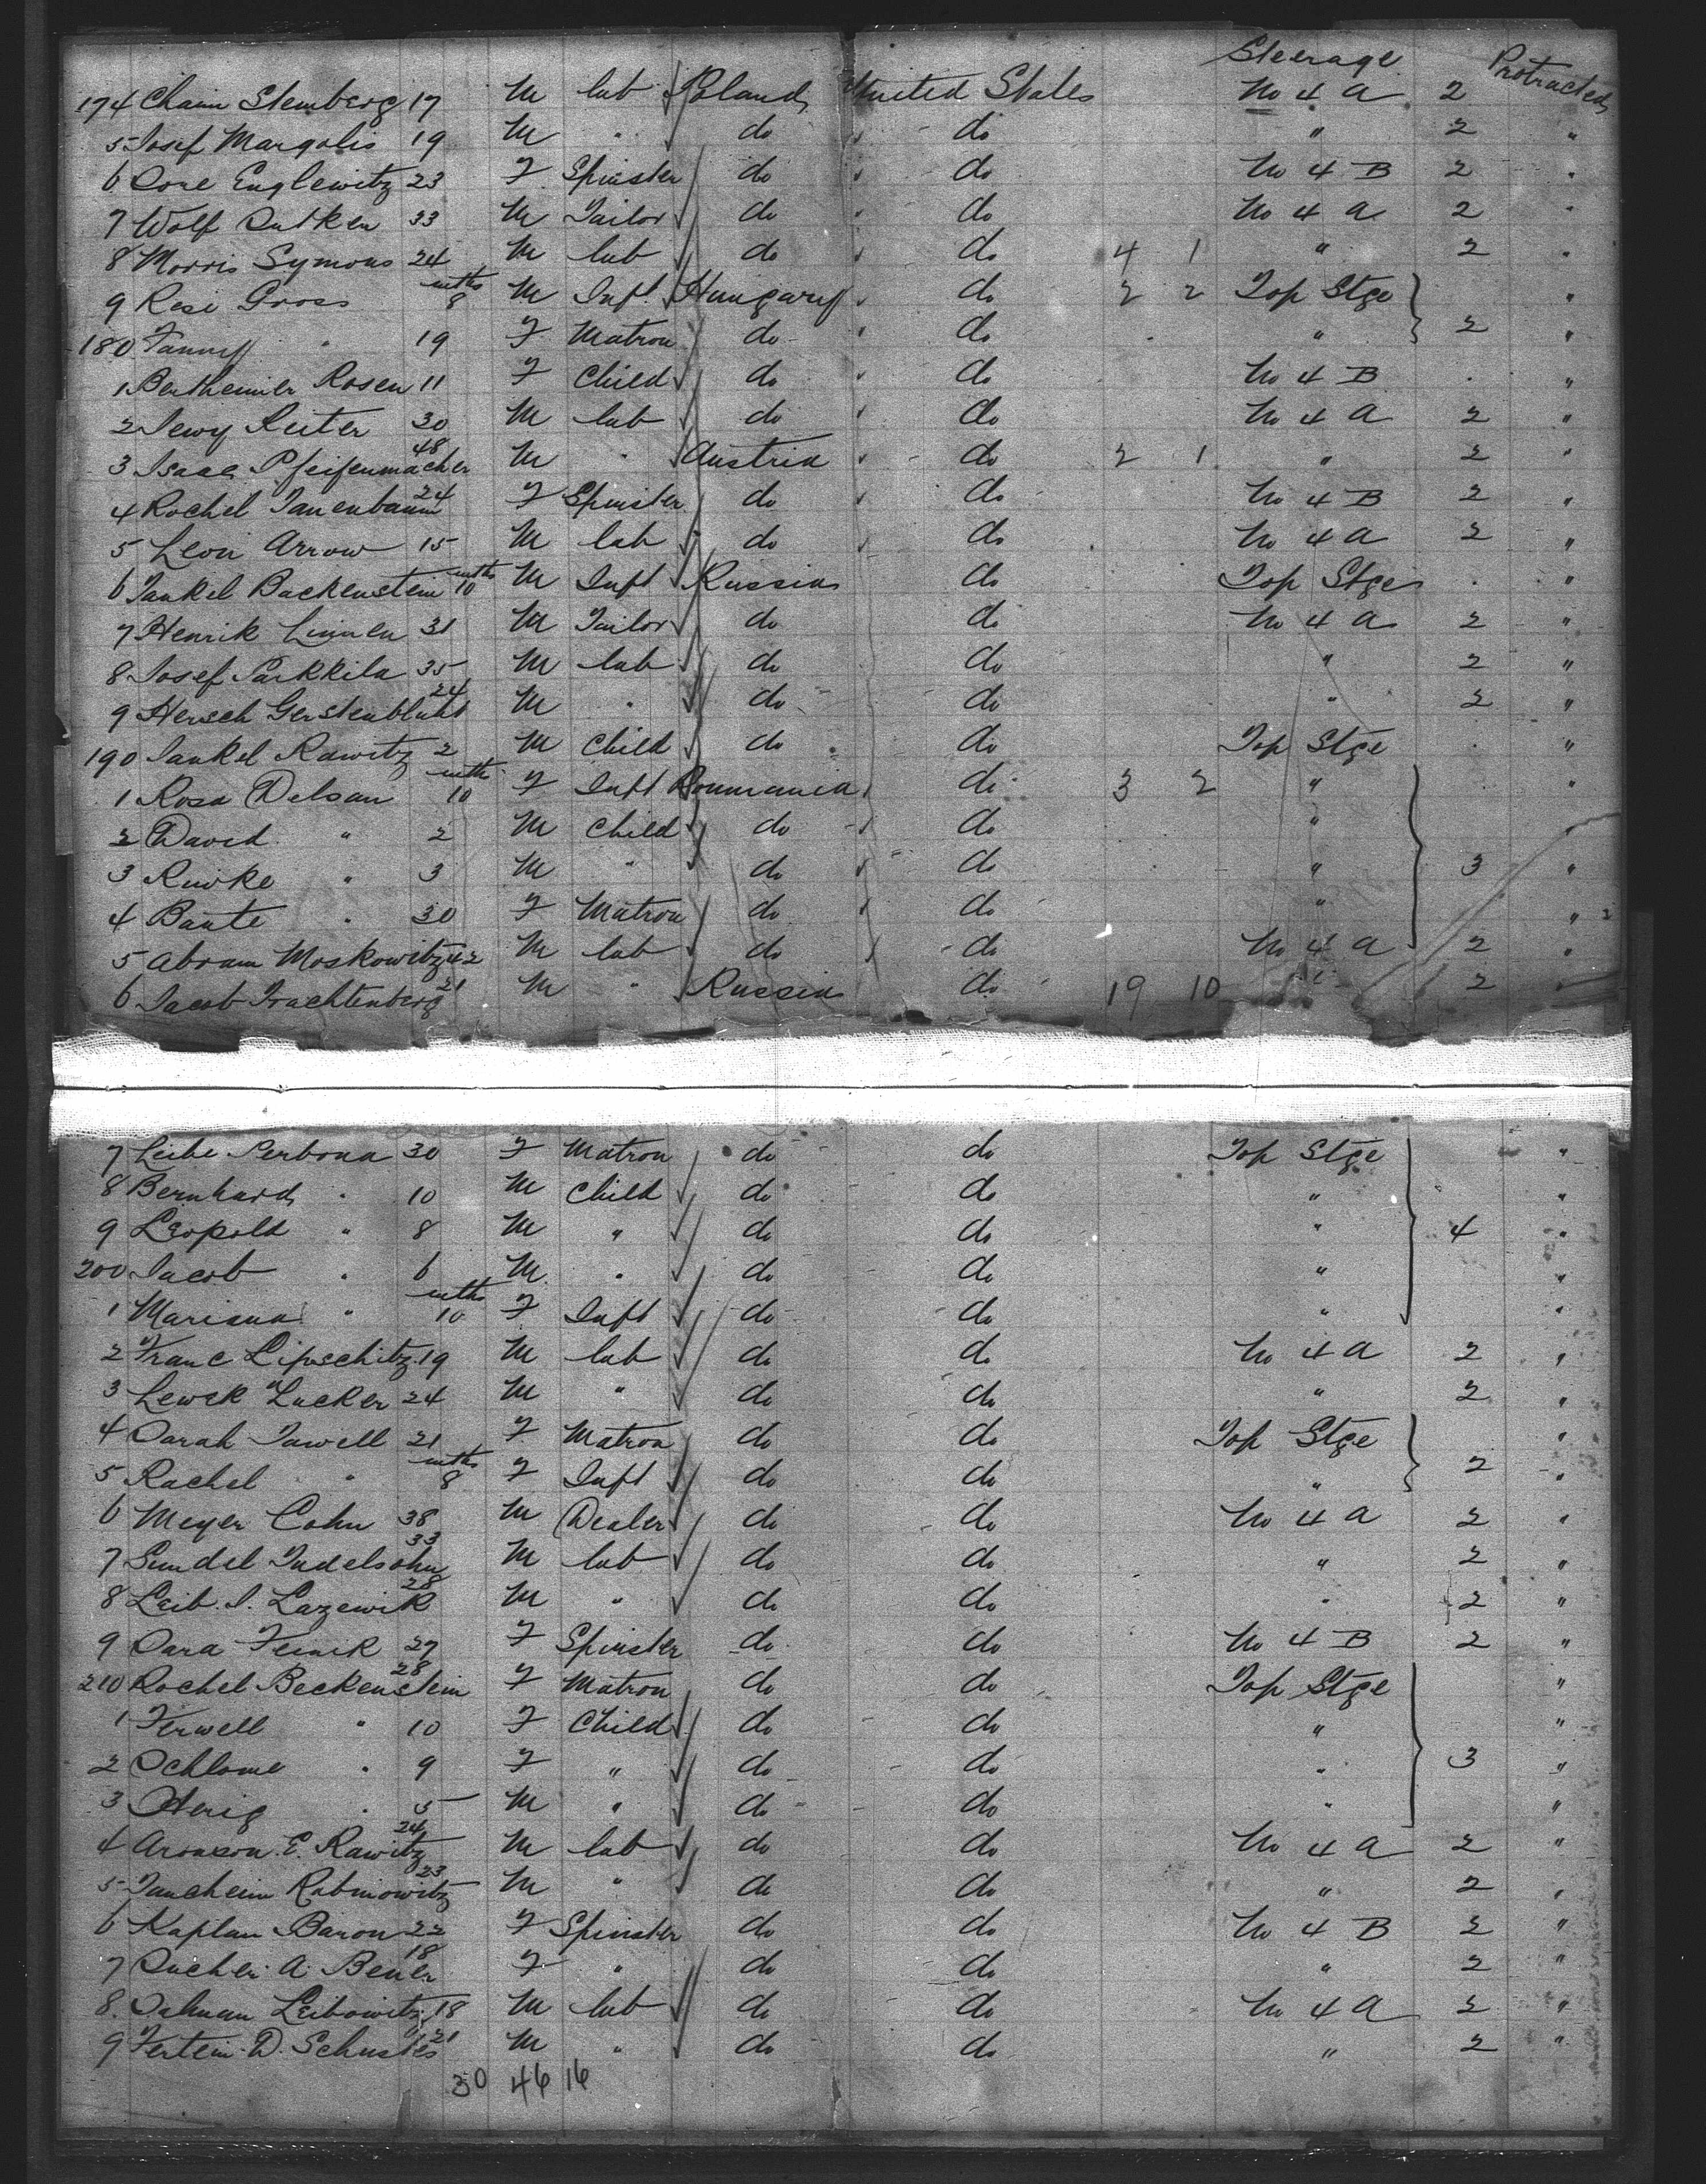 Steerage Protracted
174 Chaim Stemberg 17 M lab Poland United States No 4 A 2
5 Josef Margolis 19 M " do do " 2 "
6 Englewitz 23 F Spinster do do No 4 B 2 "
7 Wolf 33 M Tailor do do No 4 A 2 "
8 Morris Symons 24 M lab do do 4 1 " 2 "
9 Resi Gross 8 mths M Inft Hungary do 2 2 Top Stge "
180 Fanny " 19 F Matron do do " 2 "
1 Bertheimer Rosen 11 F Child do do No 4 B "
2 Reiter 30 M lab do do No 4 A 2 "
3 Isaac Pfeifenmacher 48 M " Austria do 2 1 " 2 "
4 Rochel Tanenbaum 24 F Spinster do do No 4 B 2 "
5 Leon Arrow 15 M lab do do No 4 A 2 "
6 Jankel Backenstein 10 mths M Inft Russia do Top Stge "
7 Henrik Linnen 31 M Tailor do do No 4 A 2 "
8 Josef Parkkila 35 M lab do do " 2 "
9 Hersch Gerstenbluht 24 M " do do " 2 "
190 Jankel Rawitz 2 M Child do do Top Stge "
1 Rosa Delsan 10 mths F Inft Roumania do 3 2 " "
2 David " 2 M Child do do "
3 Riwke " 3 M " do do " 3 "
4 Bante " 30 F Matron do do " "
5 Abram Moskowitz 42 M lab do do No 4 A 2 "
6 Jacob Trachtenberg 21 M " Russia do 19 10 " 2 "
7 Leibe Serbona 30 F Matron do do Top Stge "
8 Bernhard " 10 M Child do do " "
9 Leopold " 8 M " do do " 4 "
200 Jacob " 6 M " do do " "
1 Mariana " 10 mths F Inft do do " "
2 Franc Lipschitz 19 M lab do do No 4 A 2 "
3 Lewek Lucker 24 M " do do " 2 "
4 Sarah Tawell 21 F Matron do do Top Stge "
5 Rachel " 8 mths F Inft do do " 2 "
6 Meyer Cohn 38 M Dealer do do No 4 A 2 "
7 Sundel Judelsohn 33 M lab do do " 2 "
8 Leib. I. Lazewik 28 M " do do " 2 "
9 Sara 27 F Spinster do do No 4 B 2 "
210 Rochel Beckenstein 28 F Matron do do Top Stge "
1 Ferwell " 10 F Child do do " "
2 Schlome " 9 F " do do " 3 "
3 Herig " 5 M " do do " "
4 Aronson. E. Rawitz 24 M lab do do No 4 A 2 "
5 Rabinowitz 23 M " do do " 2 "
6 Kaplan Baron 22 F Spinster do do No 4 B 2 "
7 A. Bener 18 F " do do " 2 "
8 Salman Leibowitz 18 M lab do do No 4 A 2 "
9 D. Schustes 21 M " do do " 2 "
30 46 16